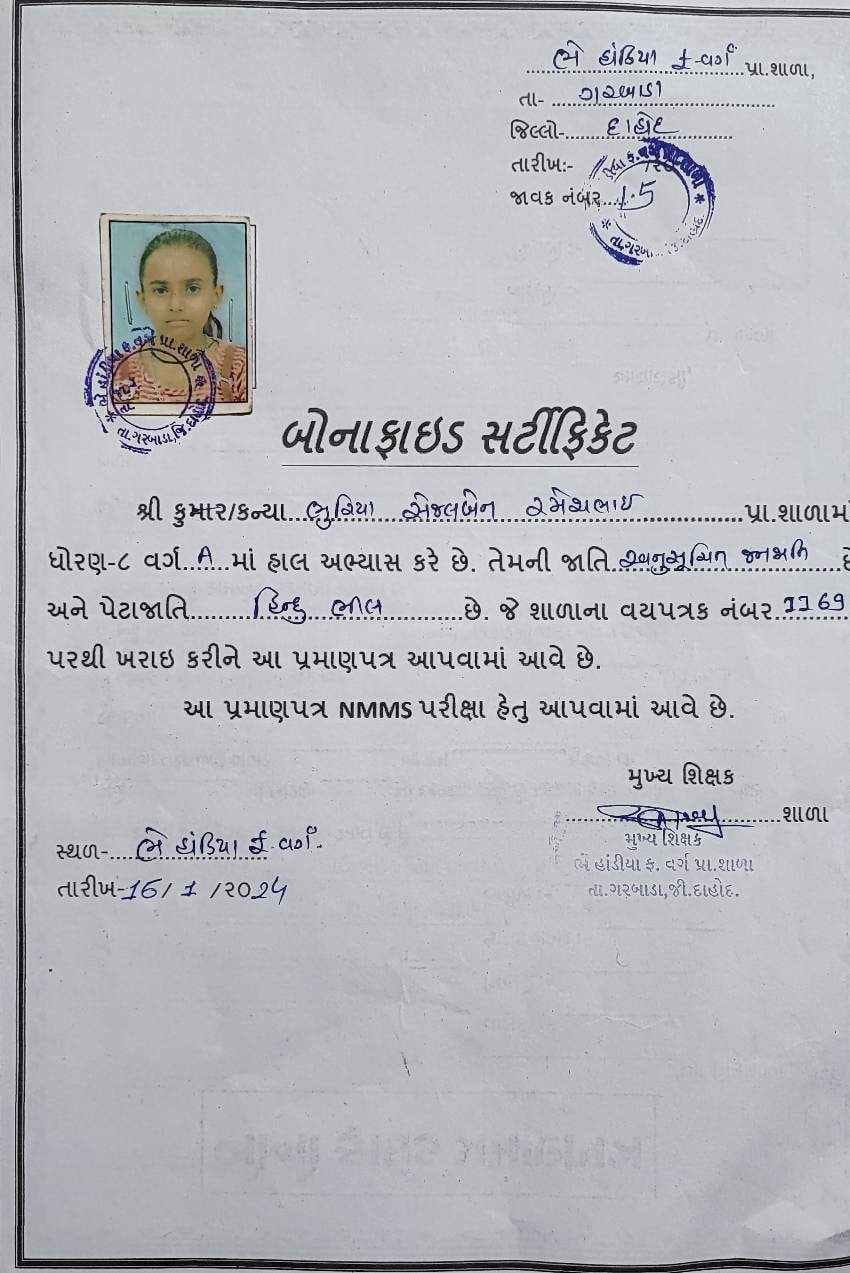 ભે હાંડિયા ફ-વર્ગ પ્રા.શાળા,
તા- ગરબાડા
જિલ્લો- દાહોદ
તારીખ:-
જાવક નંબર
બોનાફાઇડ સર્ટીફિકેટ
શ્રી કુમાર/કન્યા ભુરિયા સેજલબેન રમેશભાઇ પ્રા.શાળામ
ધોરણ-૮ વર્ગ A માં હાલ અભ્યાસ કરે છે. તેમની જાતિ અનુસૂચિત જનજાતિ
અને પેટાજાતિ હિન્દુ ભીલ છે. જે શાળાના વયપત્રક નંબર 1169
પરથી ખરાઇ કરીને આ પ્રમાણપત્ર આપવામાં આવે છે.
આ પ્રમાણપત્ર NMMS પરીક્ષા હેતુ આપવામાં આવે છે.
મુખ્ય શિક્ષક
શાળા
મુખ્ય શિક્ષક
ભે હાંડીયા ફ. વર્ગ પ્રા.શાળા
તા.ગરબાડા,જી.દાહોદ.
સ્થળ- ભે હાંડિયા ફ-વર્ગ.
તારીખ-16/1/2024